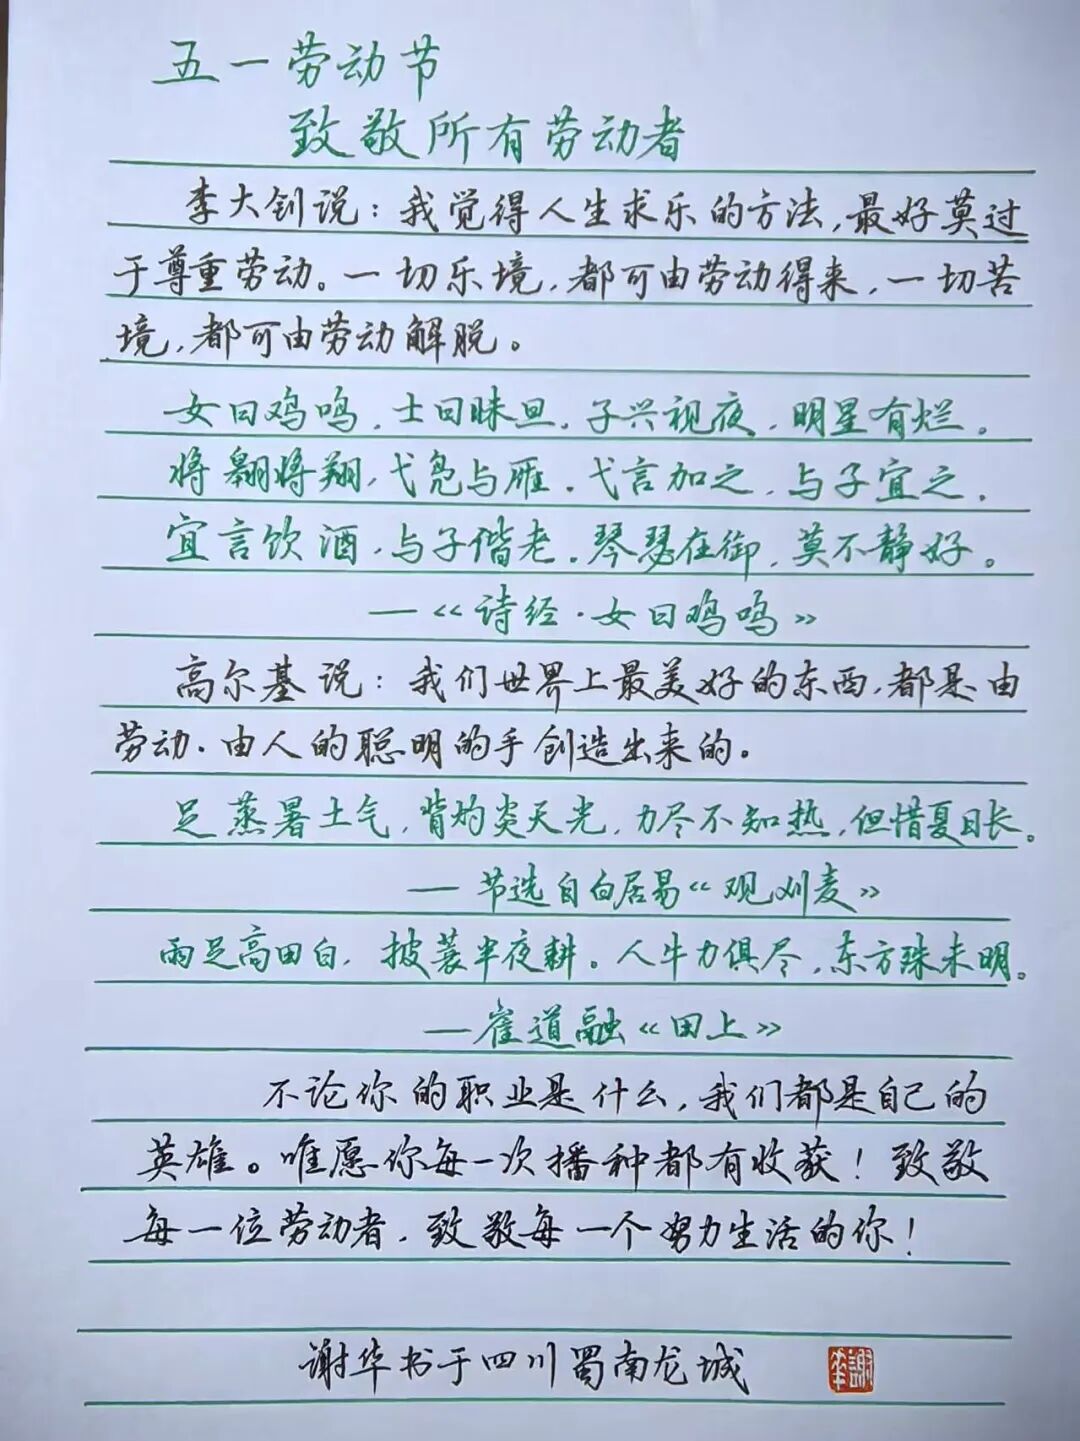 五一劳动节
致敬所有劳动者
李大钊说：我觉得人生求乐的方法，最好莫过
于尊重劳动。一切乐境，都可由劳动得来，一切苦
境，都可由劳动解脱。
女曰鸡鸣，士曰昧旦。子兴视夜，明星有烂。
将翱将翔，弋凫与雁。弋言加之，与子宜之。
宜言饮酒，与子偕老。琴瑟在御，莫不静好。
—《诗经·女曰鸡鸣》
高尔基说：我们世界上最美好的东西，都是由
劳动．由人的聪明的手创造出来的。
足蒸暑土气，背灼炎天光，力尽不知热，但惜夏日长。
—节选自白居易《观刈麦》
雨足高田白，披蓑半夜耕。人牛力俱尽，东方殊未明。
—崔道融《田上》
不论你的职业是什么，我们都是自己的
英雄。唯愿你每一次播种都有收获！致敬
每一位劳动者．致敬每一个努力生活的你！
谢华书于四川蜀南龙城
謝華